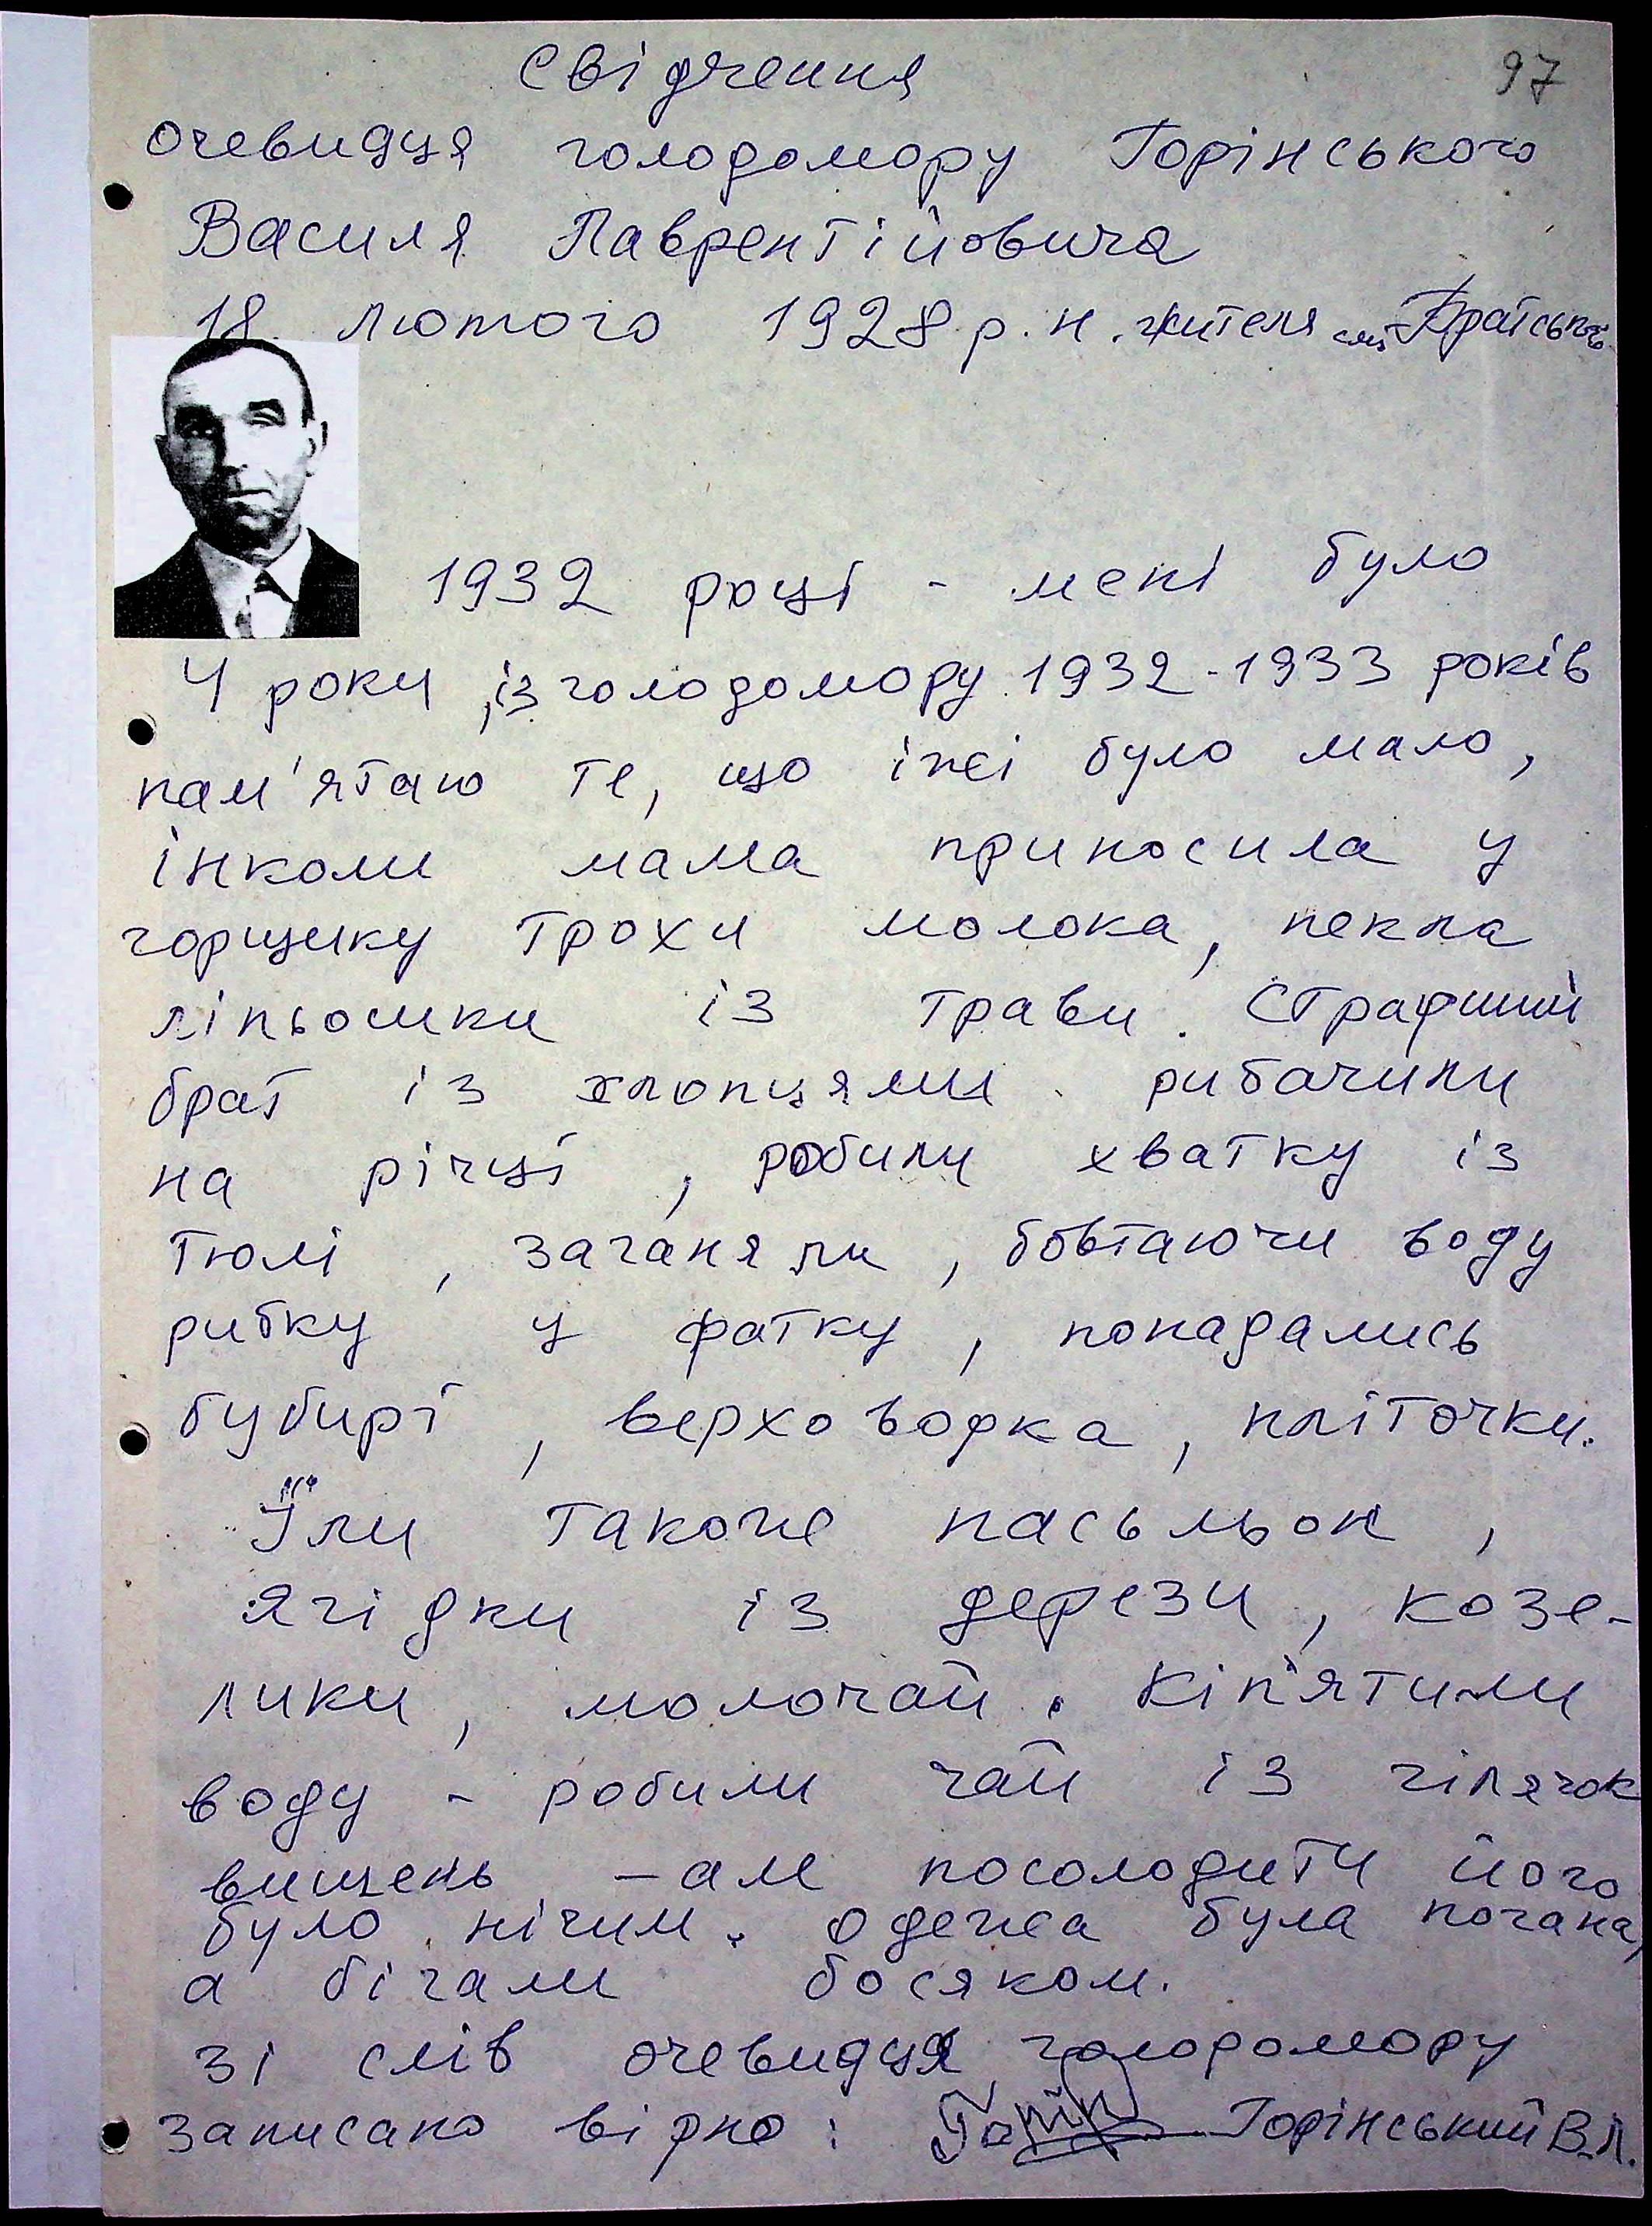 Свідчення
97
очевидця голодомору Горінського
Василя Лаврентійовича
18 лютого 1928 р.н. жителя смт Братське
1932 році - мені було
4 роки, із голодомору 1932-1933 років
пам'ятаю те, що їжі було мало,
інколи мама приносила у
горщику трохи молока, пекла
ліпьошки із трави. Страрший
брат із хлопцями рибачили
на річці, робили хватку із
тюлі, заганяли, бовтаючи воду
рибку у фатку, попадались
бубирі, верховодка, пліточки.
Їли також пасльон,
ягідки із дерези, козе-
лики, молочай. Кіп'ятили
воду - робили чай із гілячок
вишень - але посолодити його
було нічим. Одежа була погана,
а бігали босяком.
Зі слів очевидця голодомору
записано вірно: Горінський В.Л.